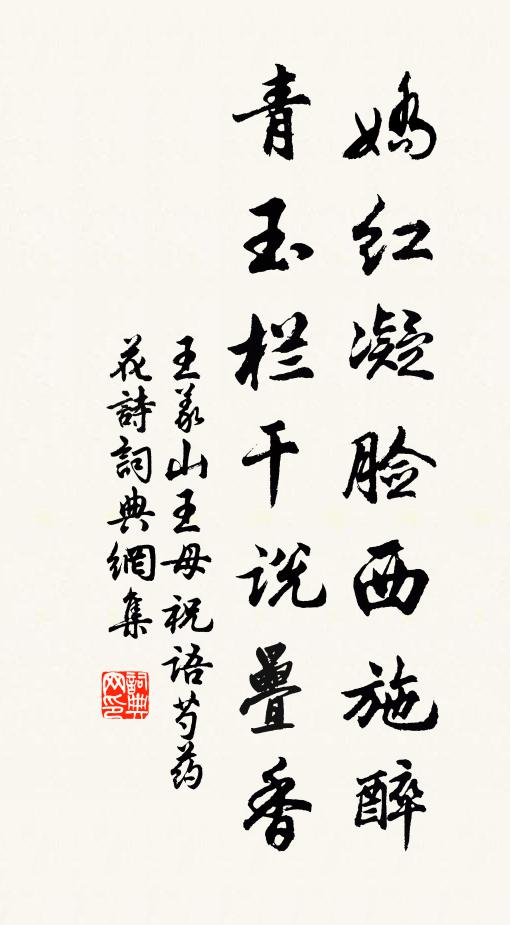 娇红凝脸西施醉
青玉栏干说疊香
王义山王母祝语芍药
花詩詞典網集
詞典网印